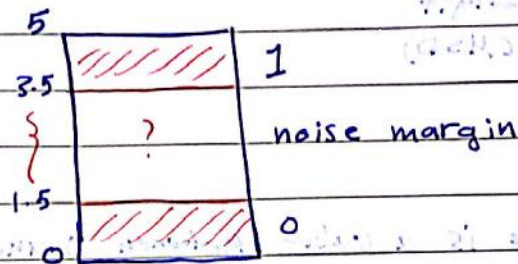 5
1
3.5
? noise margin
1.5
0
0